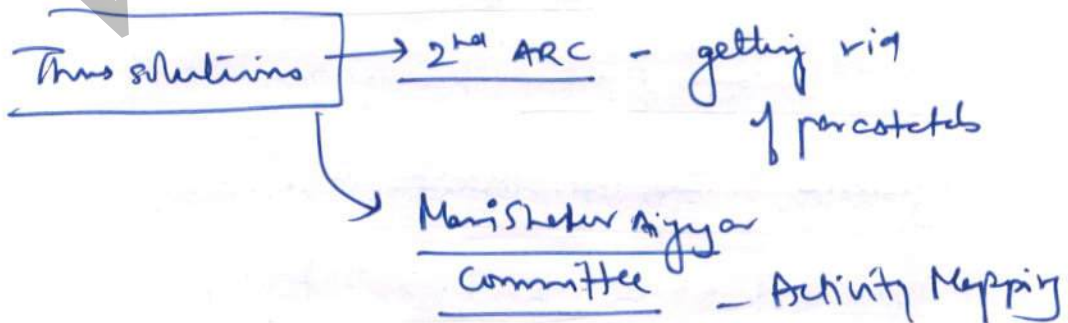 Thus solutions → 2nd ARC - getting rid
of parastatals
Manishekar Aiyyar
Committee - Activity Mapping